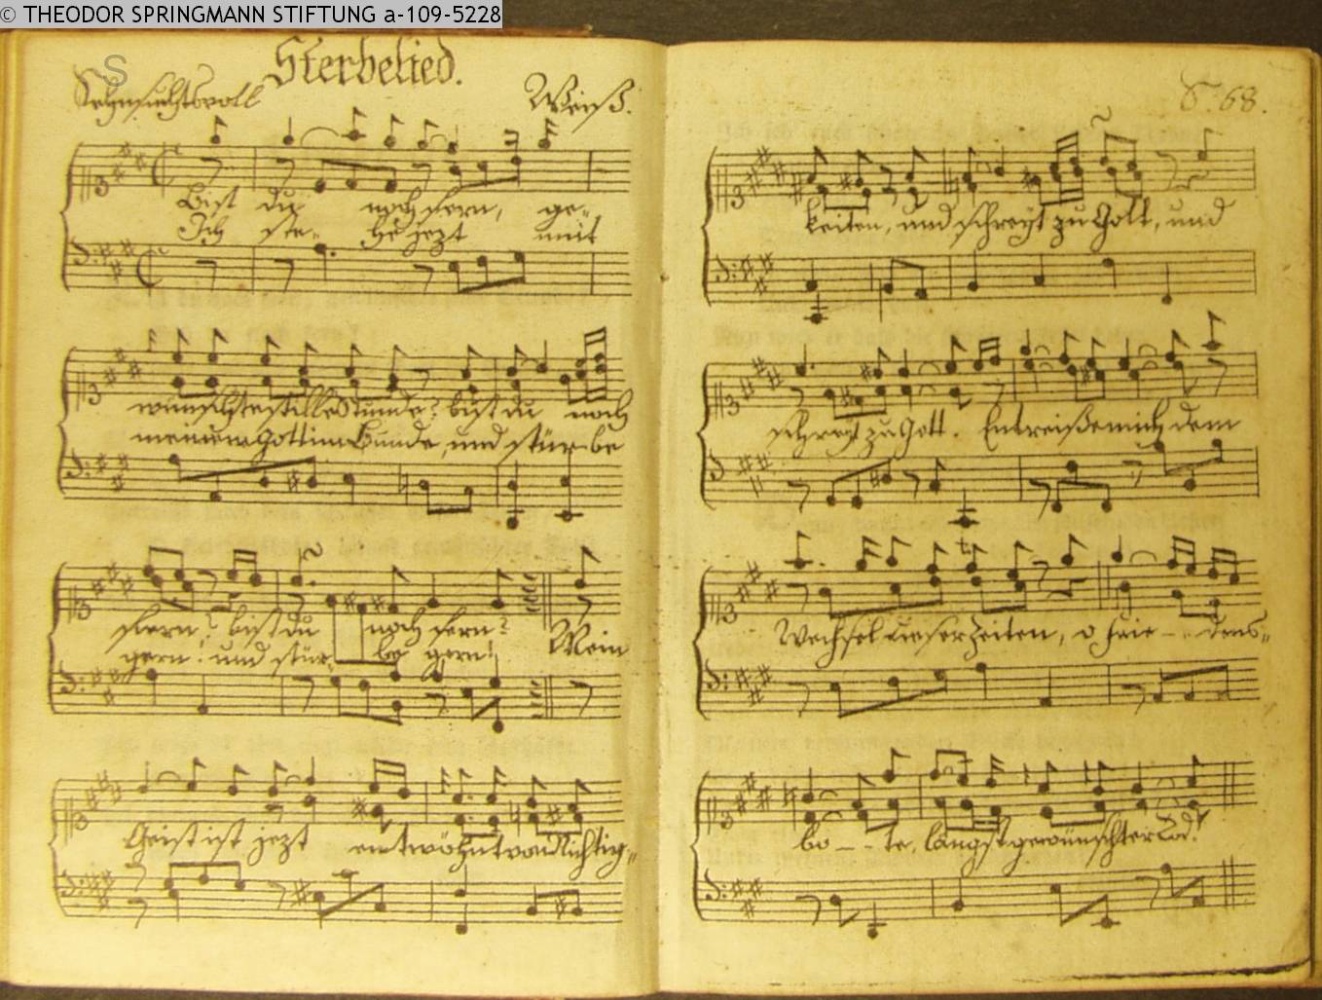 © THEODOR SPRINGMANN STIFTUNG a-109-5228
Sterbelied.
Sehnsuchtsvoll
Weiß.
Bist du noch fern, ge-
Ich ste- he jezt mit
wünschteste stille Stunde? bist du noch
meinem Gott im Bunde, und stürbe
fern? bist du noch fern? Mein
gern! und stür- be gern!
Geist ist jezt entwöhnt von Nichtig-
S. 68.
keiten, und schreyt zu Gott, und
schreyt zu Gott. Entreiße mich dem
Wechsel dieser Zeiten, o frie- - dens-
bo - - te, längst gewünschter Tod!